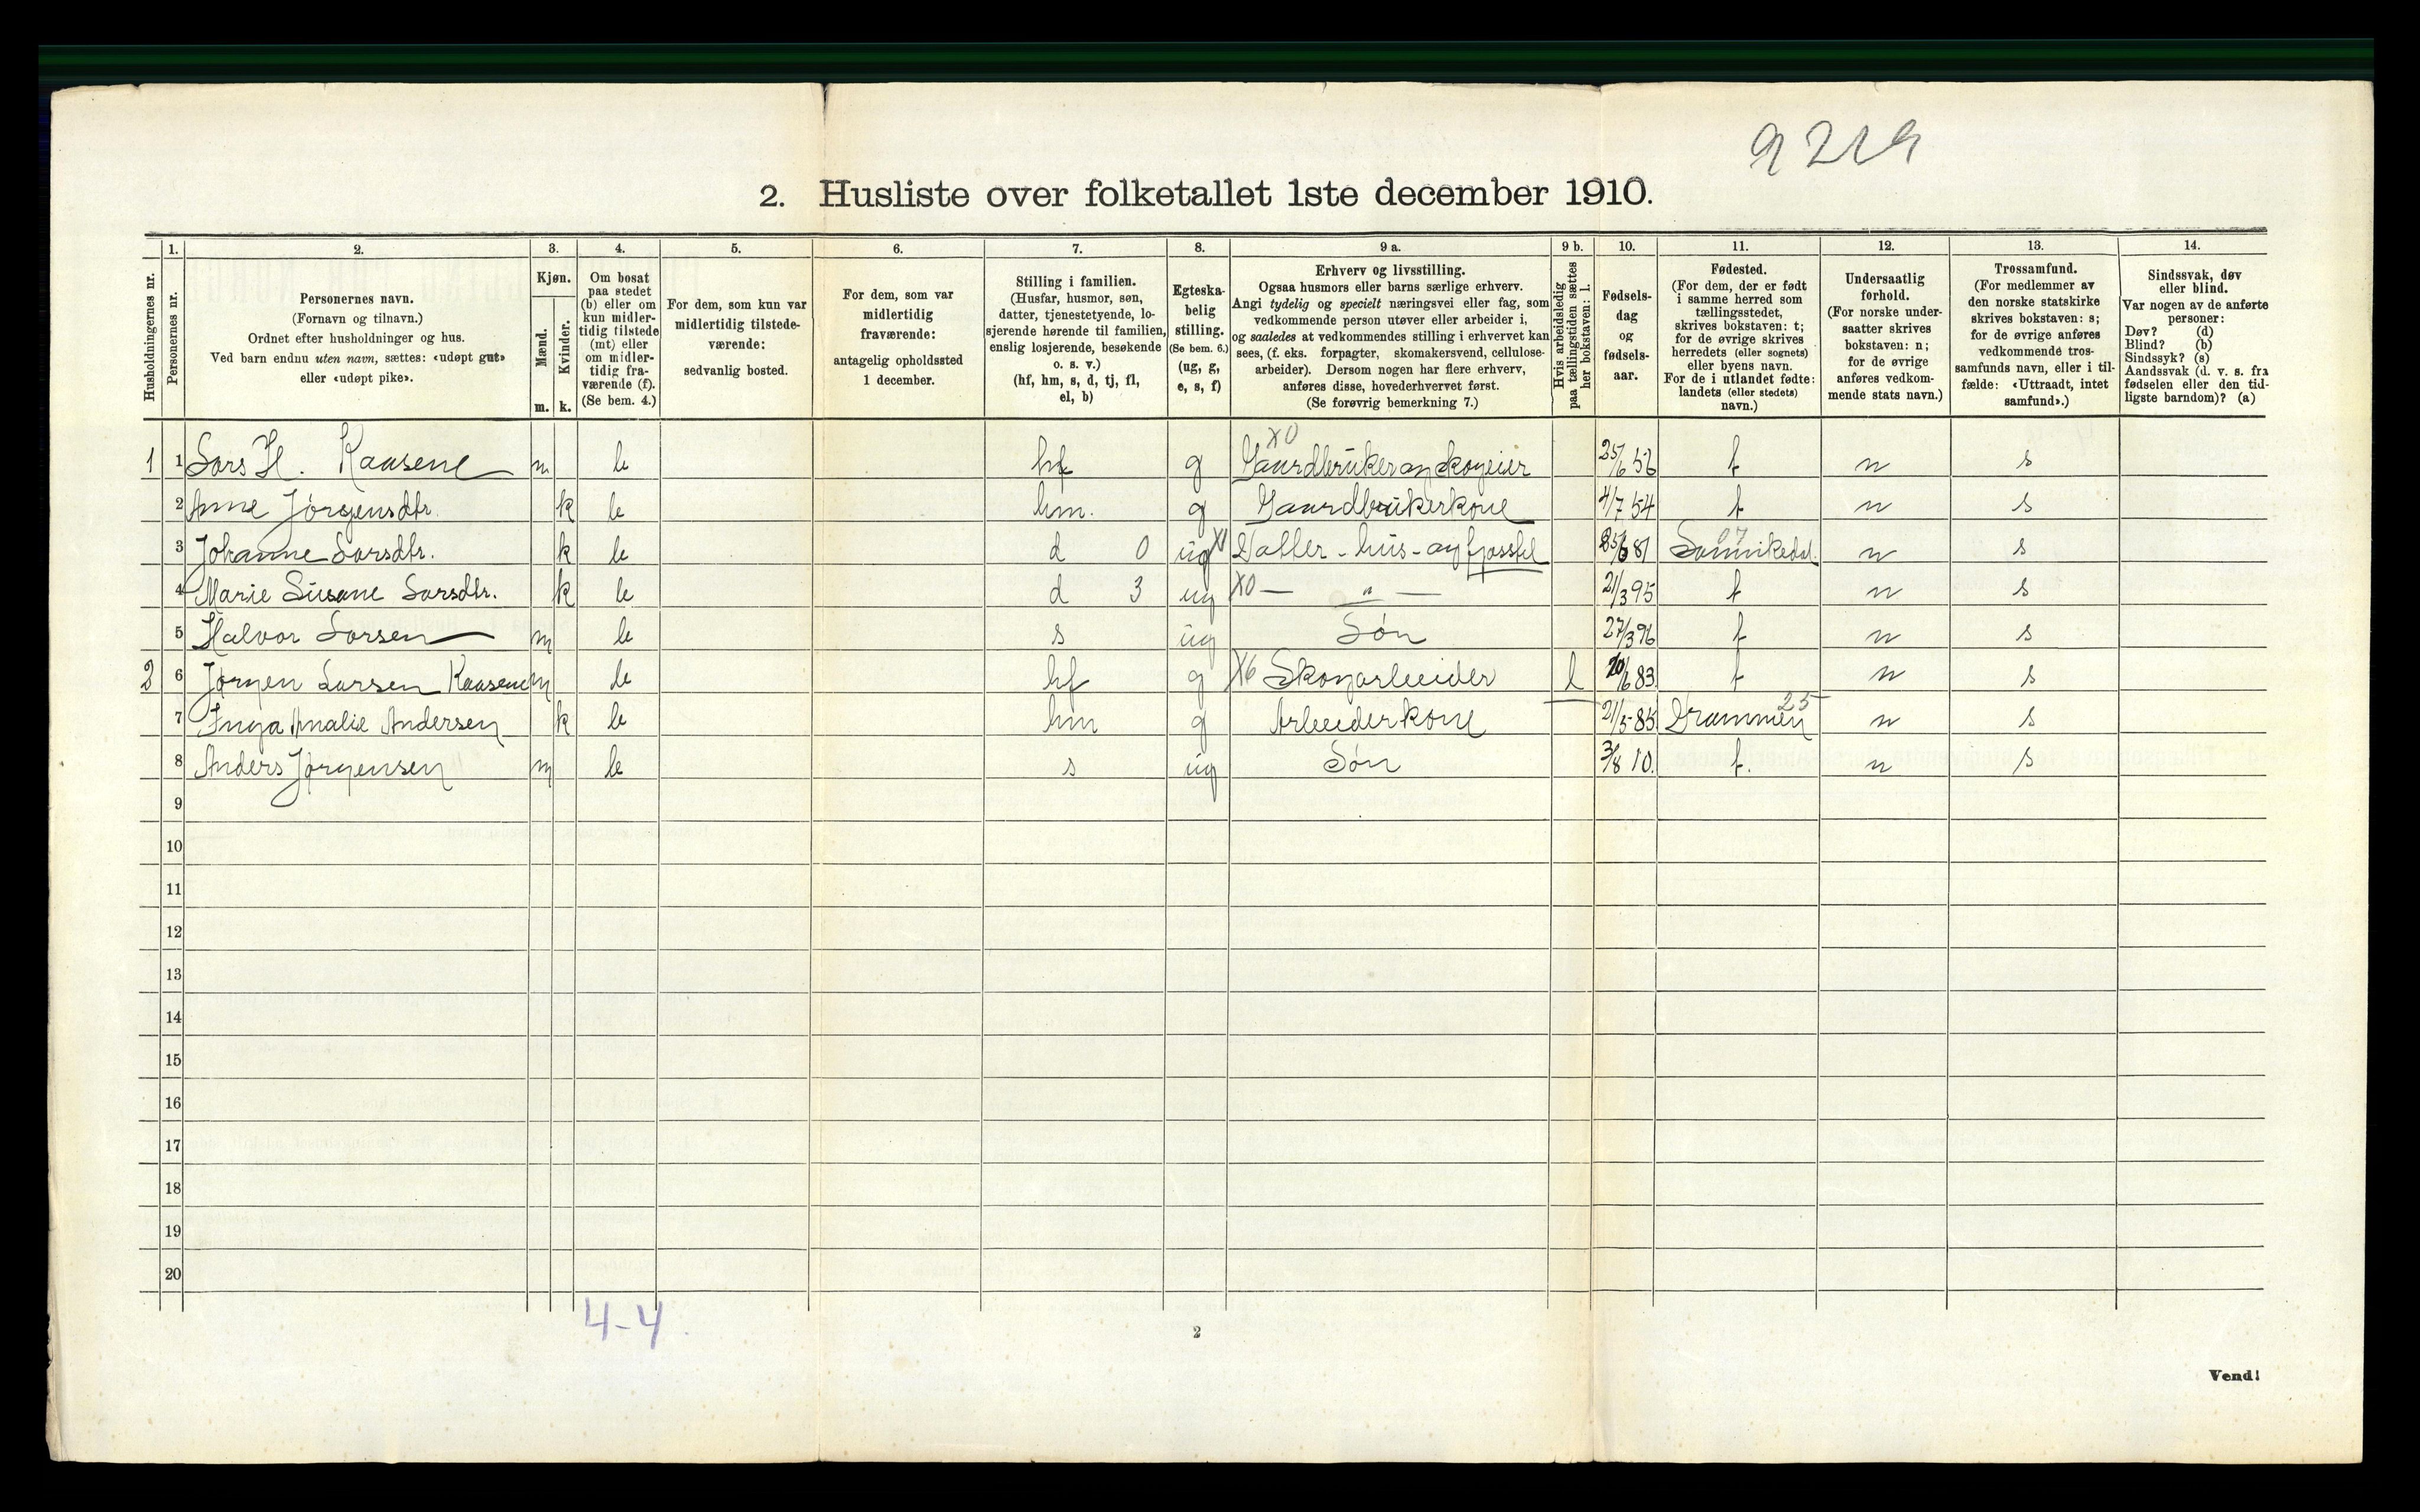 9219
2. Husliste over folketallet 1ste december 1910.
Husholdningernes nr.
1.
Personernes nr.
2.
Personernes navn.
(Fornavn og tilnavn.)
Ordnet efter husholdninger og hus.
Ved barn endnu uten navn, sættes: «udøpt gut»
eller «udøpt pike».
3.
Kjøn.
Mænd.
m.
Kvinder.
k.
4.
Om bosat
paa stedet
(b) eller om
kun midler-
tidig tilstede
(mt) eller
om midler-
tidig fra-
værende (f).
(Se bem. 4.)
5.
For dem, som kun var
midlertidig tilstede-
værende:
sedvanlig bosted.
6.
For dem, som var
midlertidig
fraværende:
antagelig opholdssted
1 december.
7.
Stilling i familien.
(Husfar, husmor, søn,
datter, tjenestetyende, lo-
sjerende hørende til familien,
enslig losjerende, besøkende
o. s. v.)
(hf, hm, s, d, tj, fl,
el, b)
8.
Egteska-
belig
stilling.
(Se bem. 6.)
(ug, g,
e, s, f)
9 a.
Erhverv og livsstilling.
Ogsaa husmors eller barns særlige erhverv.
Angi tydelig og specielt næringsvei eller fag, som
vedkommende person utøver eller arbeider i,
og saaledes at vedkommendes stilling i erhvervet kan
sees, (f. eks. forpagter, skomakersvend, cellulose-
arbeider). Dersom nogen har flere erhverv,
anføres disse, hovederhvervet først.
(Se forøvrig bemerkning 7.)
9 b.
Hvis arbeidsledig
paa tællingstiden sættes
her bokstaven: l.
10.
Fødsels-
dag
og
fødsels-
aar.
11.
Fødested.
(For dem, der er født
i samme herred som
tællingsstedet,
skrives bokstaven: t;
for de øvrige skrives
herredets (eller sognets)
eller byens navn.
For de i utlandet fødte:
landets (eller stedets)
navn.)
12.
Undersaatlig
forhold.
(For norske under-
saatter skrives
bokstaven: n;
for de øvrige
anføres vedkom-
mende stats navn.)
13.
Trossamfund.
(For medlemmer av
den norske statskirke
skrives bokstaven: s;
for de øvrige anføres
vedkommende tros-
samfunds navn, eller i til-
fælde: «Uttraadt, intet
samfund».)
14.
Sindssvak, døv
eller blind.
Var nogen av de anførte
personer:
Døv? (d)
Blind? (b)
Sindssyk? (s)
Aandssvak (d. v. s. fra
fødselen eller den tid-
ligste barndom)? (a)
X0
1 1 Lars H. Kaasene m b hf g Gaardbruker og skogeier 25/6 56 t n s
2 Anne Jørgensdtr. k b hm. g Gaardbrukerkone 4/7 54 t n s
07
3 Johanne Larsdtr. k b d 0 ug Datter - hus- og fjøsstel 81 Sannikedal. n s
4 Marie Susane Larsdtr. k b d 3 ug X0 — " — 21/3 95 t n s
5 Halvor Larsen m b s ug Søn 27/3 96 t n s
2 6 Jørgen Larsen Kaasene m b hf g X6 Skogarbeider l 10/6 83. t n s
25
7 Inga Amalie Andersen k b hm g Arbeiderkone 21/5 85 Drammen n s
8 Anders Jørgensen m b s ug Søn 3/8 10. t. n s
9
10
11
12
13
14
15
16
17
18
19
20
4-4.
2
Vend!